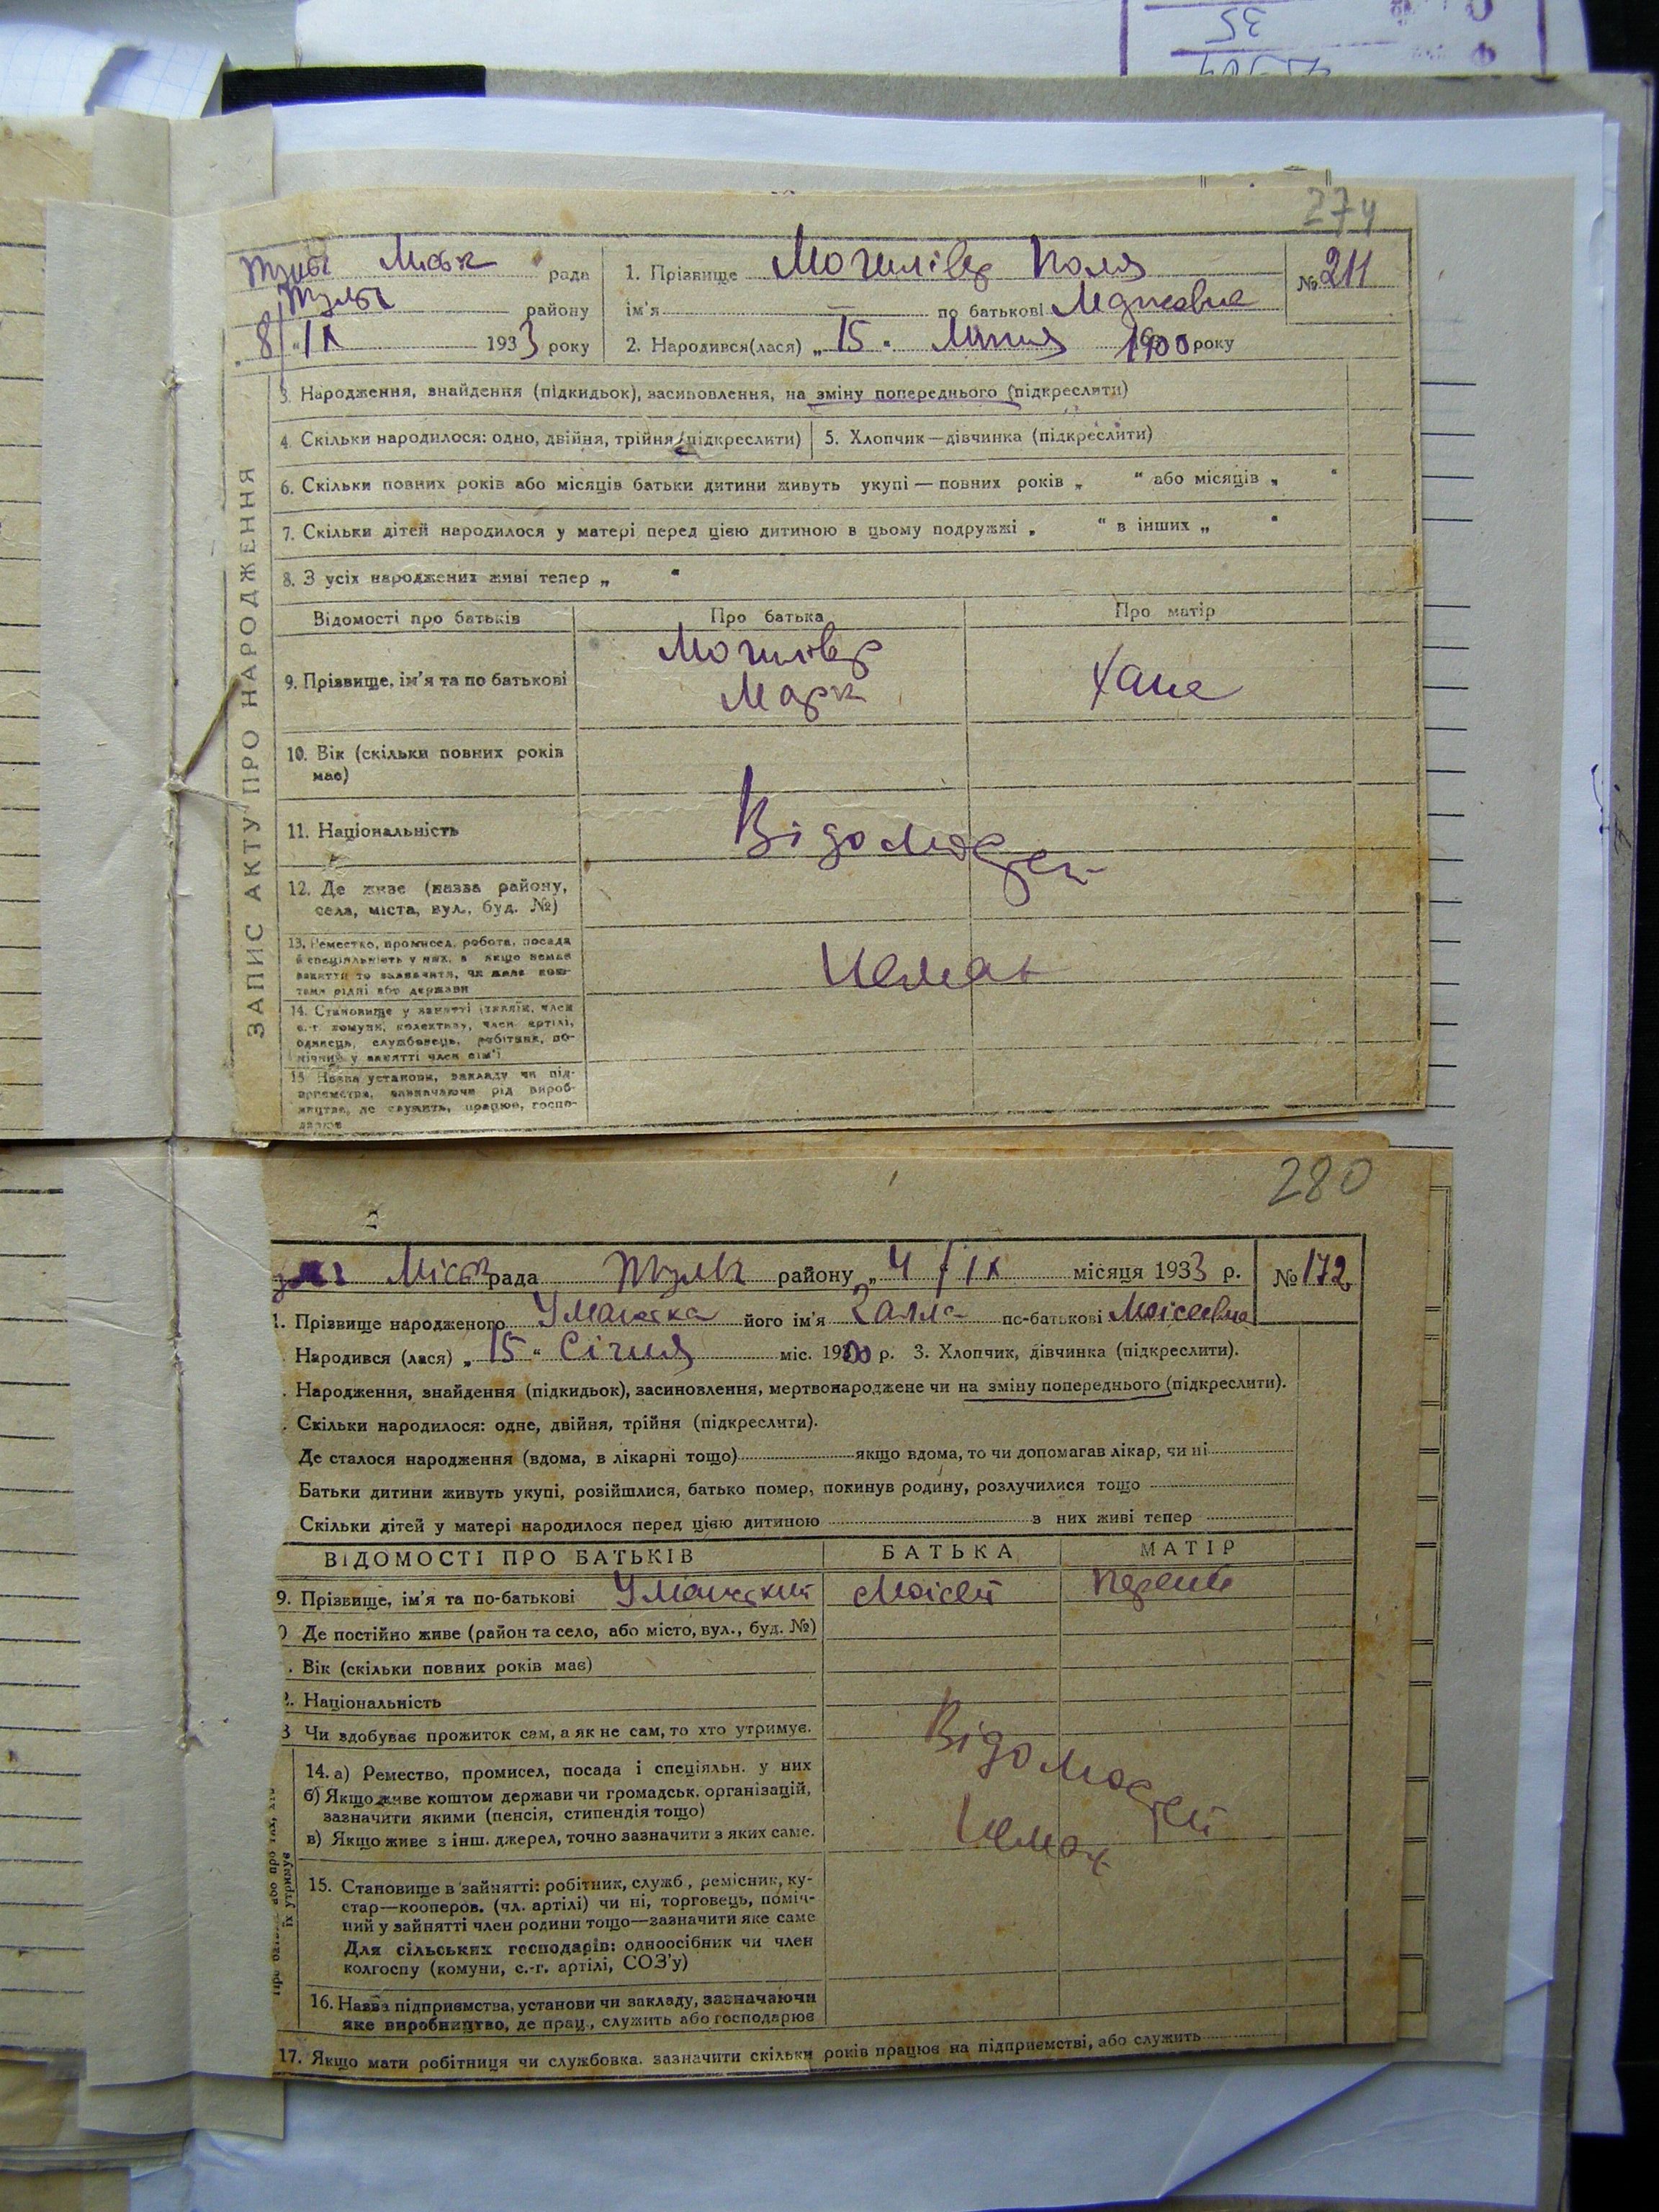 35
274
Міськ рада
району
8/IX 1933 року
1. Прізвище Могилівер Поля
№ 211
ім'я — по батькові Марковна
2. Народився(лася) „15" Липня 1900 року
ЗАПИС АКТУ ПРО НАРОДЖЕННЯ
3. Народження, знайдення (підкидьок), засиновлення, на зміну попереднього (підкреслити)
4. Скільки народилося: одно, двійня, трійня (підкреслити) 5. Хлопчик—дівчинка (підкреслити)
6. Скільки повних років або місяців батьки дитини живуть укупі — повних років „ " або місяців „ "
7. Скільки дітей народилося у матері перед цією дитиною в цьому подружжі „ " в інших „ "
8. З усіх народжених живі тепер „ "
Відомості про батьків Про батька Про матір
9. Прізвище, ім'я та по батькові
Могилівер
Марк
Хана
10. Вік (скільки повних років
має)
11. Національність
Відомостей
12. Де живе (назва району,
села, міста, вул., буд. №)
13. Ремество, промисел, робота, посада
й спеціяльність у них, а якщо немає
заняття то зазначити, чи живе кош-
тами рідні або держави
Немає
14. Становище у занятті (хазяїн, член
с.-г. комуни, колективу, член артілі,
одинець, службовець, робітник, по-
мічний у занятті член сім'ї
15. Назва установи, закладу чи під-
приємства, зазначаючи рід вироб-
ництва, де служить, працює, госпо-
дарює
280
Міськ рада Тульч району „4/IX місяця 1933 р. № 172
1. Прізвище народженого Уманська його ім'я по-батькові Моісеевна
Народився (лася) „15" Січня міс. 1900 р. 3. Хлопчик, дівчинка (підкреслити).
. Народження, знайдення (підкидьок), засиновлення, мертвонароджене чи на зміну попереднього (підкреслити).
. Скільки народилося: одне, двійня, трійня (підкреслити).
Де сталося народження (вдома, в лікарні тощо) якщо вдома, то чи допомагав лікар, чи ні
Батьки дитини живуть укупі, розійшлися, батько помер, покинув родину, розлучилися тощо
Скільки дітей у матері народилося перед цією дитиною з них живі тепер
ВІДОМОСТІ ПРО БАТЬКІВ БАТЬКА МАТІР
9. Прізвище, ім'я та по-батькові Уманский Моісей
0 Де постійно живе (район та село, або місто, вул., буд. №)
. Вік (скільки повних років має)
2. Національність
3 Чи здобуває прожиток сам, а як не сам, то хто утримує.
Відомостей
14. а) Ремество, промисел, посада і спеціяльн. у них
б) Якщо живе коштом держави чи громадськ. організацій,
зазначити якими (пенсія, стипендія тощо)
в) Якщо живе з інш. джерел, точно зазначити з яких саме.
Немає
їх утримує
15. Становище в зайнятті: робітник, служб., ремісник, ку-
стар—кооперов. (чл. артілі) чи ні, торговець, поміч-
ний у зайнятті член родини тощо—зазначити яке саме
Для сільських господарів: одноосібник чи член
колгоспу (комуни, с.-г. артілі, СОЗ'у)
16. Назва підприємства, установи чи закладу, зазначаючи
яке виробництво, де прац., служить або господарює
17. Якщо мати робітниця чи службовка. зазначити скільки років працює на підприємстві, або служить